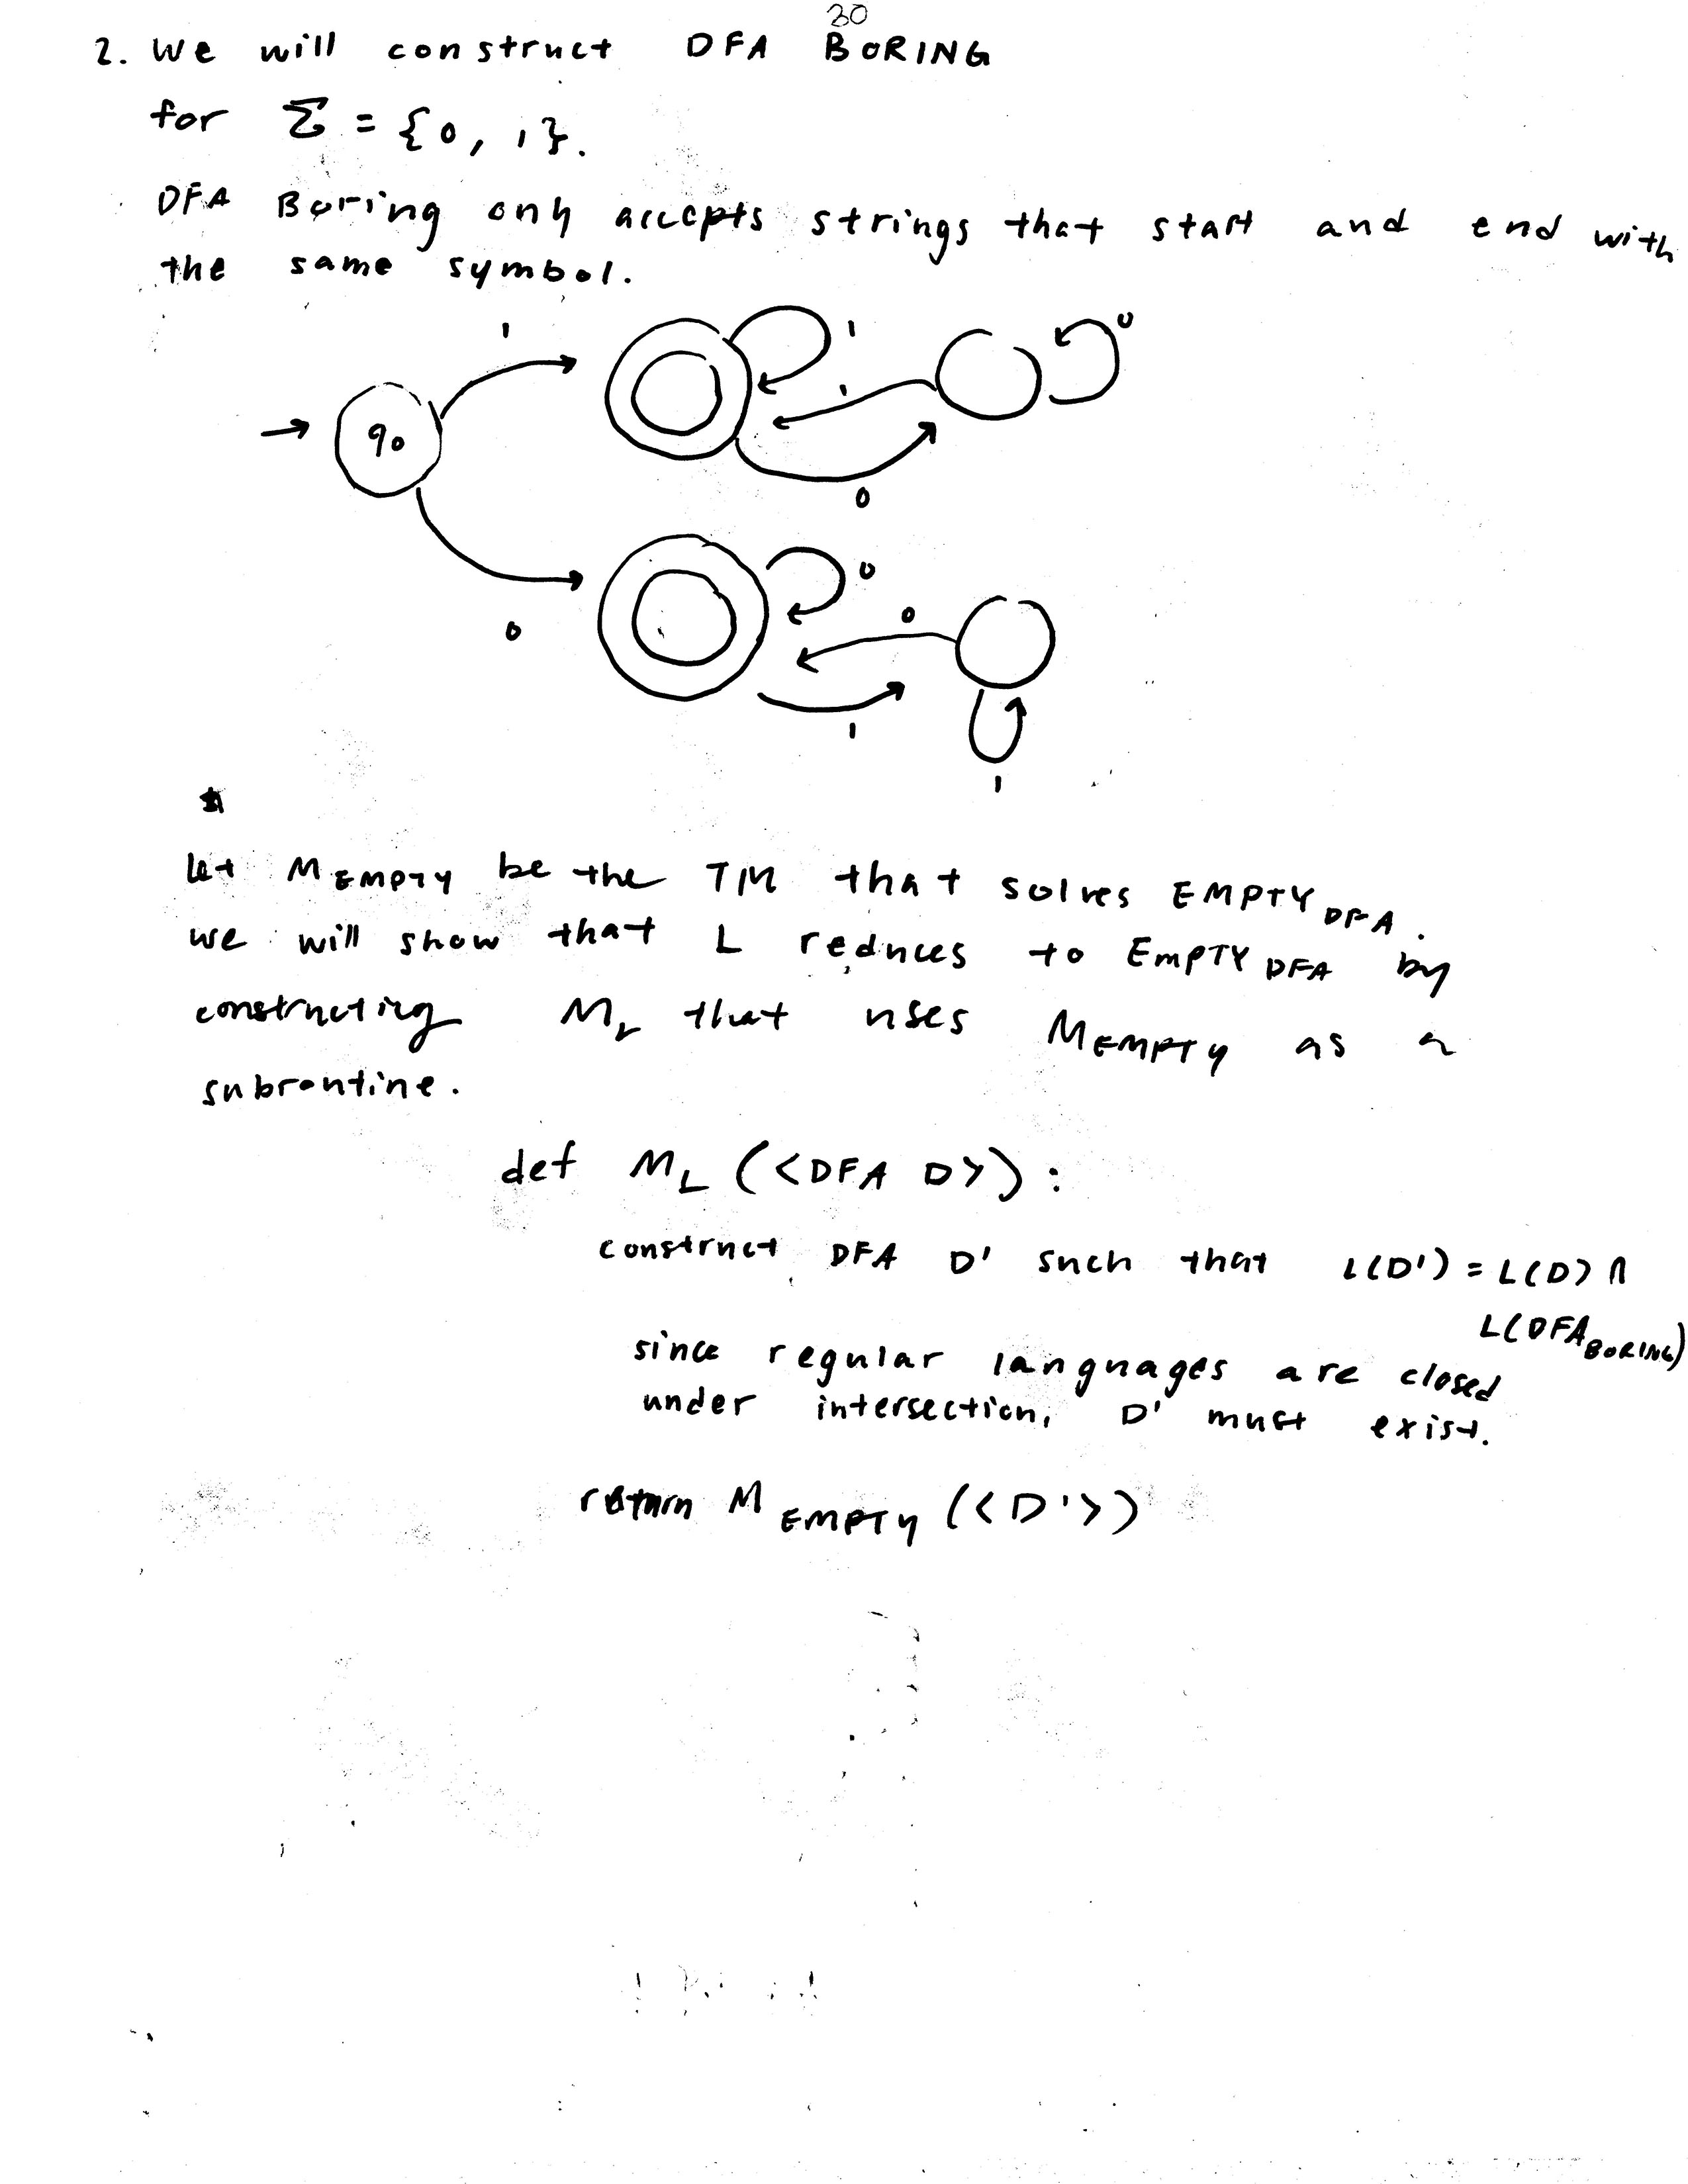 30
2. We will construct DFA BORING
for Σ = {0, 1}.
DFA Boring only accepts strings that start and end with
the same symbol.
1
1
0
1
q0
0
0
0
0
1
1
Let M EMPTY be the TM that solves EMPTY DFA.
we will show that L reduces to EMPTY DFA by
constructing M L that uses M EMPTY as a
subroutine.
def M L (<DFA D>):
construct DFA D' such that L(D') = L(D) ∩
L(DFA BORING)
since regular languages are closed
under intersection, D' must exist.
return M EMPTY (<D'>)